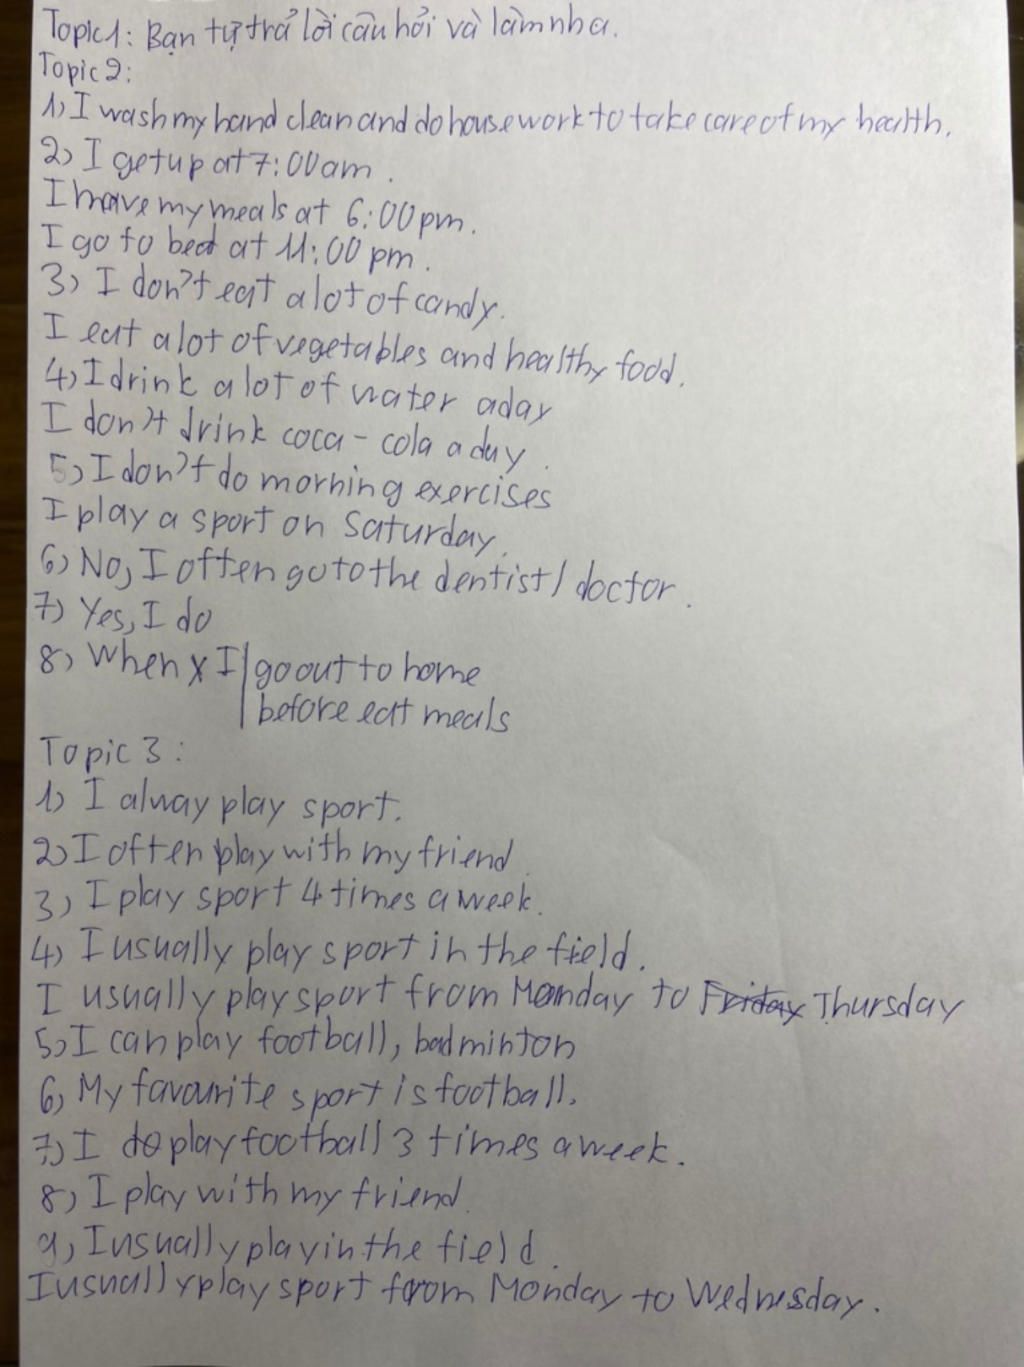 Topic1: Bạn tự trả lời câu hỏi và làm nha.
Topic 2:
1) I wash my hand clean and do housework to take care of my health.
2) I get up at 7:00 am.
I have my meals at 6:00 pm.
I go to bed at 11:00 pm.
3) I don't eat a lot of candy.
I eat a lot of vegetables and healthy food.
4) I drink a lot of water a day
I don't drink coca - cola a day.
5) I don't do morning exercises
I play a sport on Saturday.
6) No, I often go to the dentist / doctor.
7) Yes, I do
8) When I go out to home
before eat meals
Topic 3:
1) I alway play sport.
2) I often play with my friend
3) I play sport 4 times a week.
4) I usually play sport in the field.
I usually play sport from Monday to Friday Thursday
5) I can play football, badminton
6) My favourite sport is football.
7) I do play football 3 times a week.
8) I play with my friend.
9) I usually play in the field.
I usually play sport from Monday to Wednesday.